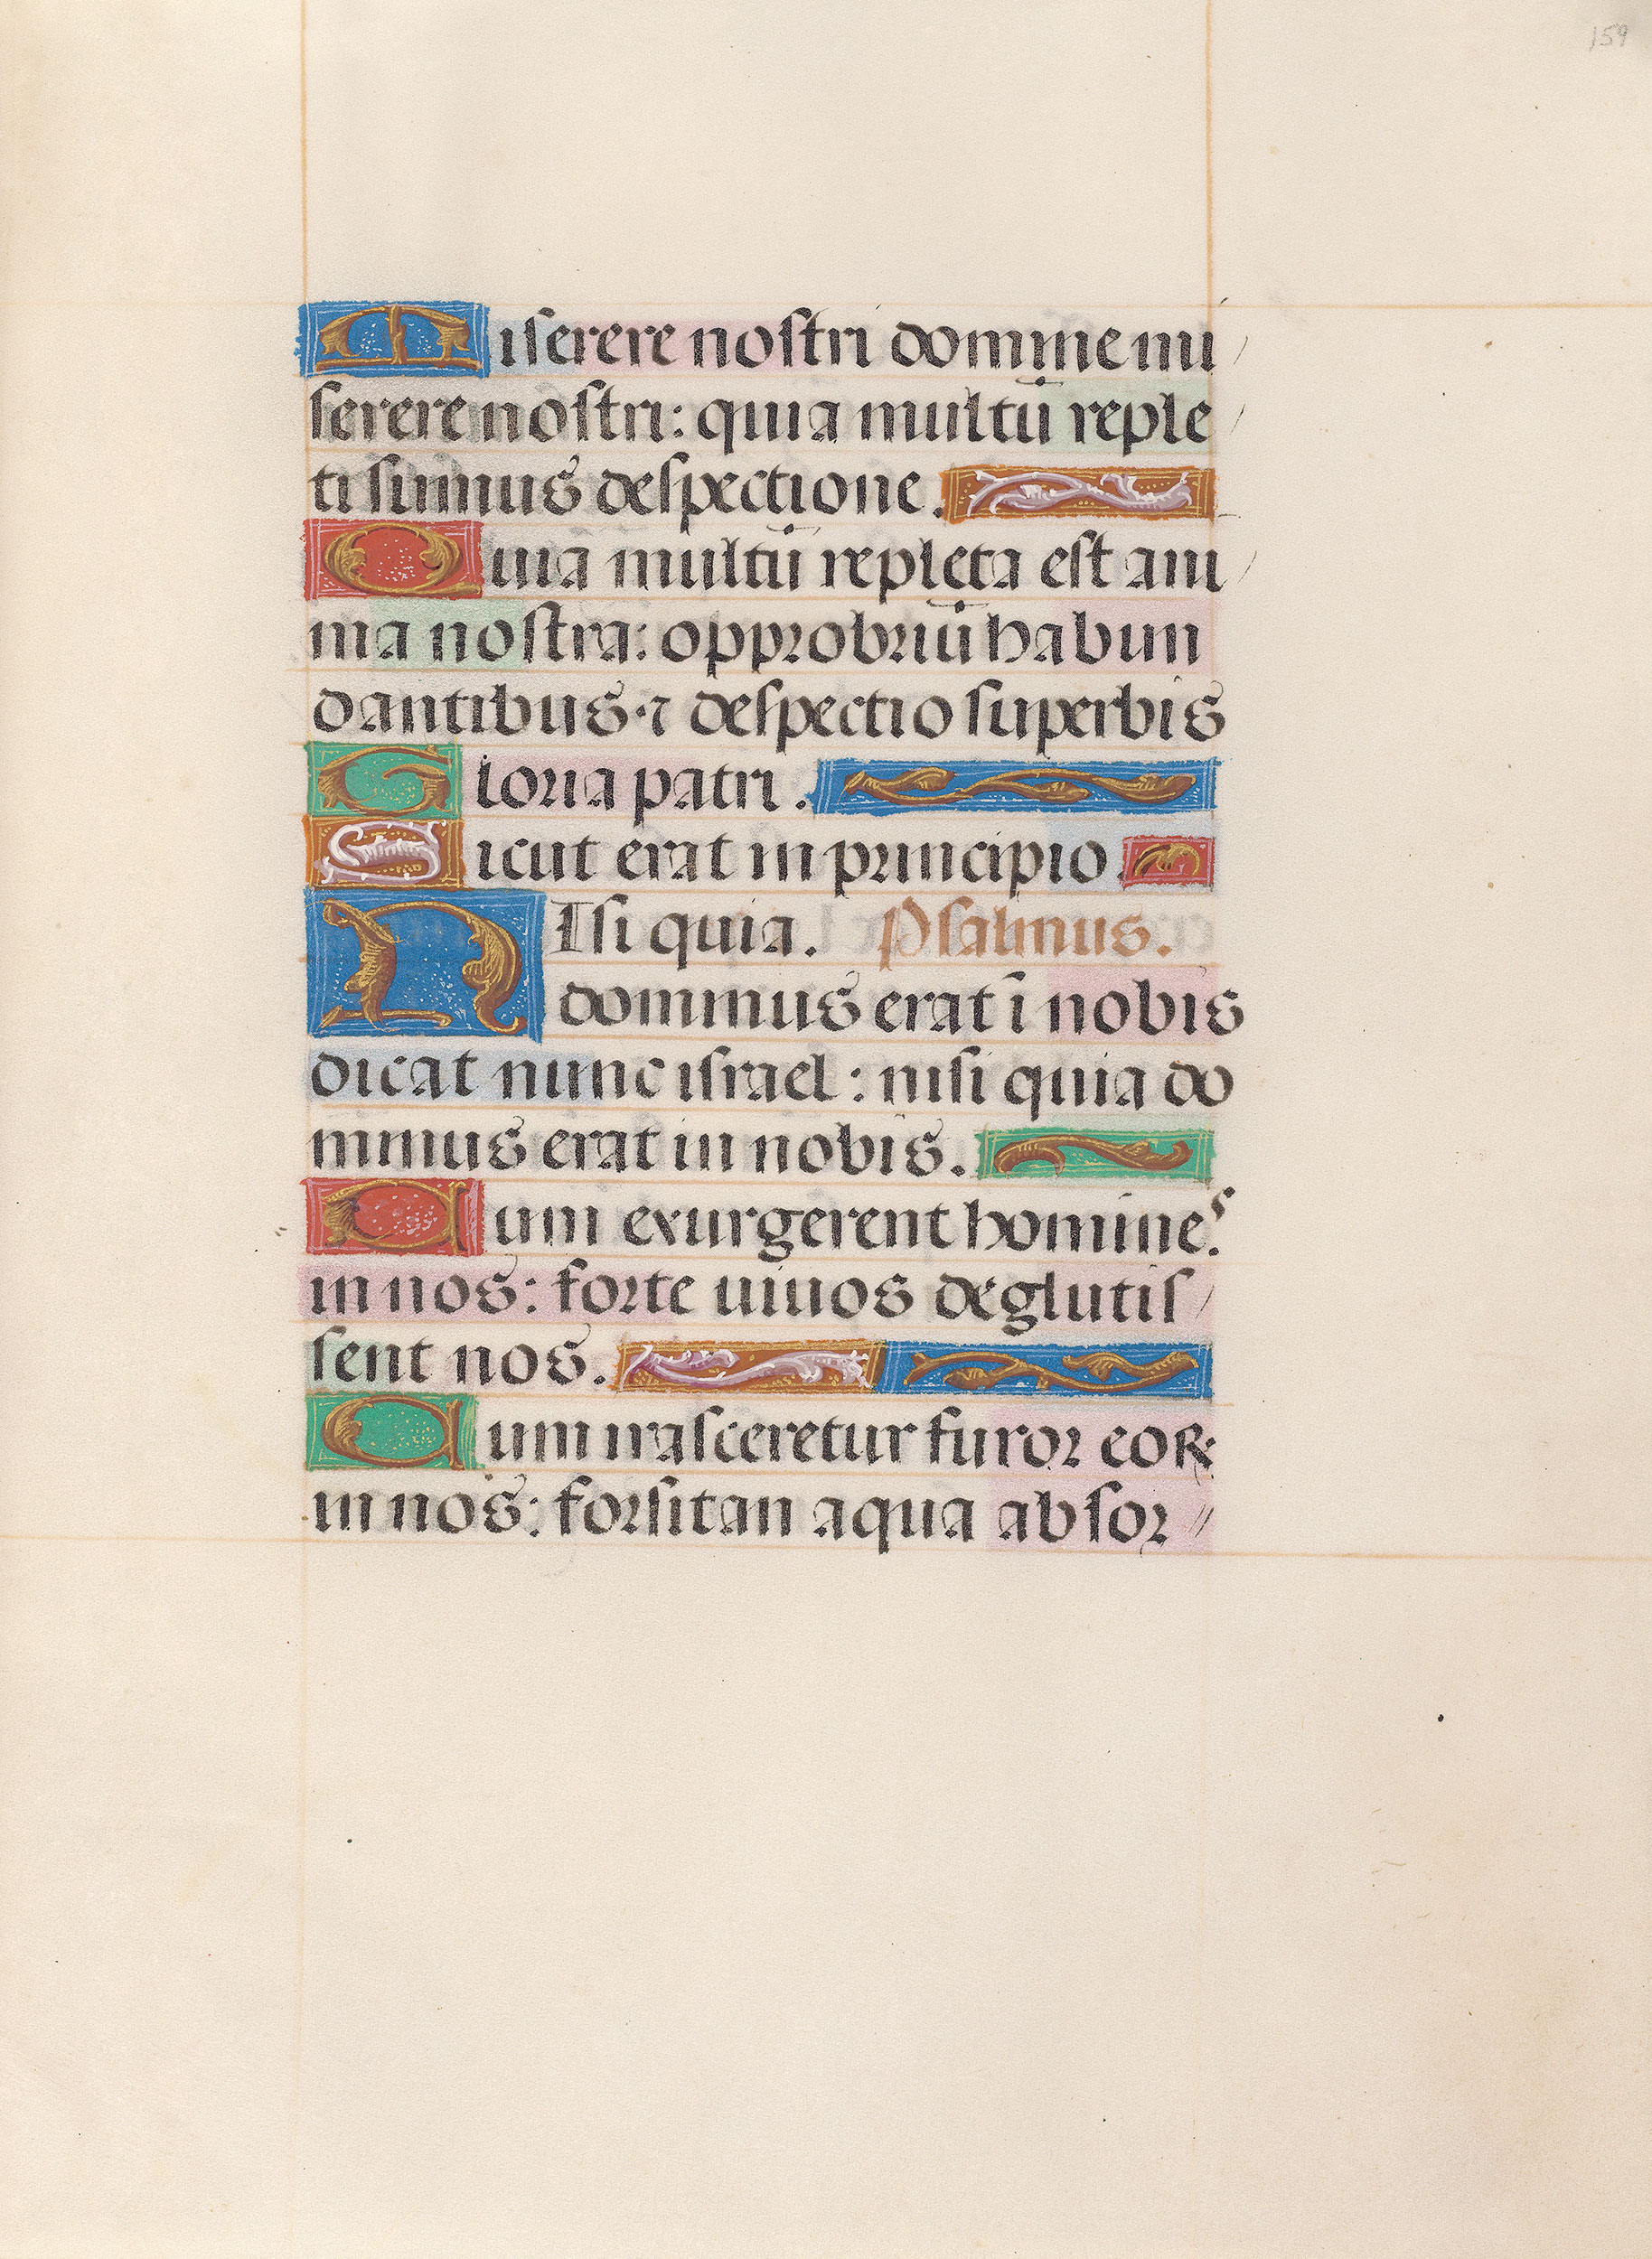 159
Miserere nostri domine mi/
serere nostri: quia multū reple/
ti sumus despectione.
Quia multū repleta est ani/
ma nostra: opprobriū habun
dantibus·⁊ despectio superbis
Gloria patri.
Sicut erat in principio.
NIsi quia. Psalmus.
dominus erat ī nobis
dicat nunc israel: nisi quia do
minus erat in nobis.
Cum exurgerent homines.
in nos: forte uiuos deglutis/
sent nos.
Cum irasceretur furor eoꝝ:
in nos: forsitan aqua absor//